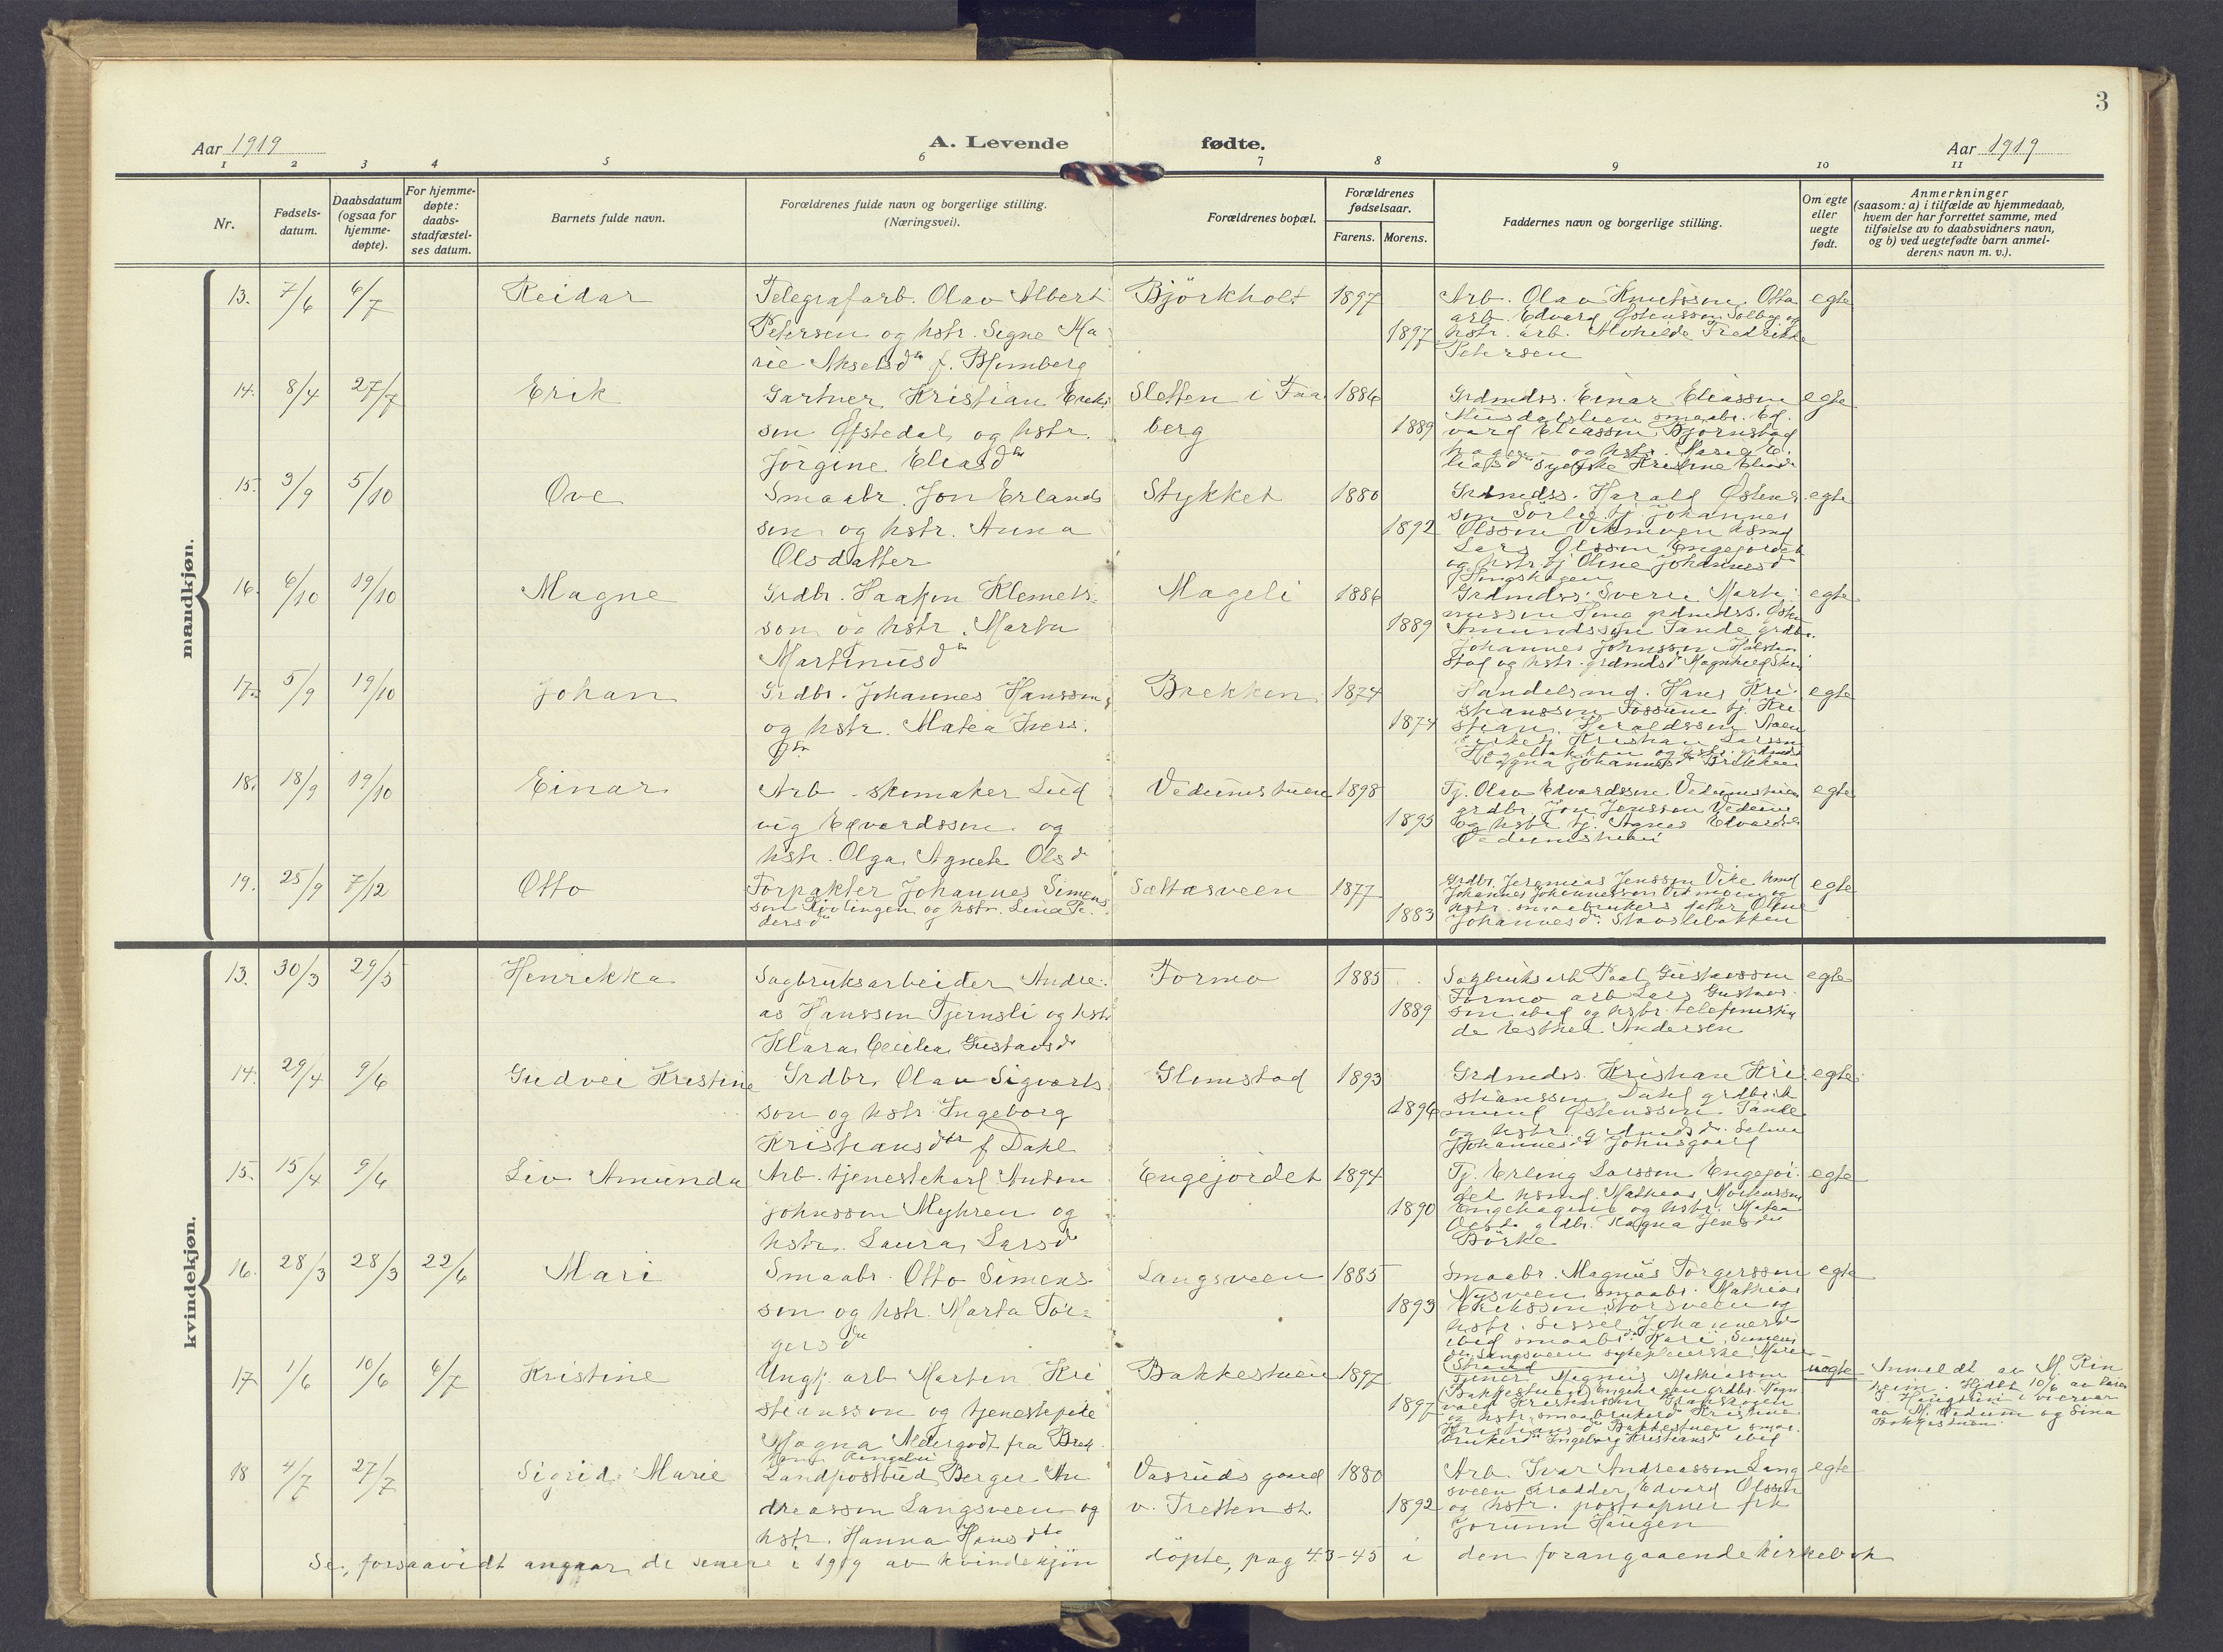 3
Aar 1919
A. Levende fødte.
Aar 1919
1 2 3 4 5 6 7 8 9 10 11
Nr.
Fødsels-
datum.
Daabsdatum
(ogsaa for
hjemme-
døpte).
For hjemme-
døpte:
daabs-
stadfæstel-
ses datum.
Barnets fulde navn.
Forældrenes fulde navn og borgerlige stilling.
(Næringsvei).
Forældrenes bopæl.
Forældrenes
fødselsaar.
Farens. Morens.
Faddernes navn og borgerlige stilling.
Om egte
eller
uegte
født.
Anmerkninger
(saasom: a) i tilfælde av hjemmedaab,
hvem der har forrettet samme, med
tilføielse av to daabsvidners navn,
og b) ved uegtefødte barn anmel-
derens navn m. v.).
mandkjøn.
13. 7/6 6/7 Reidar
Telegrafarb. Olav Albert
Petersen og hstr. Signe Ma-
rie Akselsdtr f. Blomberg
Björkholt 1897
1897
Arb. Olav Knutsson, Otta
arb. Edvard Östensson Solberg og
hstr. arb. Fredrikke
Petersen
egte
14. 8/4 27/7 Erik
Gartner Kristian Eriks-
son Ofstedal og hstr.
Jörgine Eliasdtr
Sletten i Faa
berg
1886
1889
Grdmdss. Einar Eliassen
smaabr. Ed-
vard Eliassen Björnstad
hagen og hstr. Maria E-
liasd Kristine Eliasd
egte
15. 3/9 5/10 Ove
Smaabr. Jon Erlands
son og hstr. Anna
Olsdatter
Stykket 1880
1892
Grdmdss. Harald Östens
son Sörlie tj. Johannes
Olsson Vikmoen hsmd
Lars Olsson Engejordet
og hstr. tj. Oline Johannesd
egte
16. 6/10 19/10 Magne
Grdbr. Haakon Klemets-
son og hstr. Marta
Martinusdtr
Mageli 1886
1889
Grdmdss. Sverre Marti-
nussen grdmdss.
Amundsson Tande grdbr.
Johannes Johnsson
stad og hstr. grdmdsd Magnhild
egte
17. 5/9 19/10 Johan
Grdbr. Johannes Hansson,
og hstr. Matea Ivers-
dtr
Brekken 1874
1874
Handelsmd. Hans Kri-
stiansson Fossum tj. Kri
stian Haraldsson
tj. Kristian Larsson
og hstr. grdmdsd
Magna Johannesd Brekken
egte
18. 18/9 19/10 Einar
Arb. skomaker Lud
vig Edvardsson og
hstr. Olga Agnete Olsd
Vedumstuen 1898
1895
Tj. Olav Edvardsson, Vedumstuen
grdbr. Jon Jensson Vedum
og hstr. tj. Agnes Edvardsd
Vedumstuen
egte
19. 25/9 7/12 Otto
Forpakter Johannes Simens
son Kjölingen og hstr. Lina Pe-
dersd
Sættasveen 1877
1883
Grdbr. Jeremias Jensson Vike hsmd
Johannes Johannesson Vikmoen og
hstr. smaabrukers datter Oline
Johannesd. Stavslibakken
egte
kvindekjøn.
13. 30/3 29/5 Henrikka
Sagbruksarbeider Andre-
as Hansson Tjernsli og hstr
Klara Cecilia Gustavsd
Formo 1885
1889
Sagbruksarb. Paal Gustavsson
Formo arb. Lars Gustavs-
son ibid og hstr. telefonistin
de Esther Andersen
egte
14. 29/4 9/6 Gudvei Kristine
Grdbr. Olav Sigvarts
son og hstr. Ingeborg
Kristiansdtr f. Dahl
Glimstad 1893
1896
Grdmdss. Kristian Kri
stiansson Dahl grdbr.
Östensson Tande
og hstr. grdmdsd. Selma
Johannesd Johnsgaard
egte
15. 15/4 9/6 Liv Amunda
Arb. tjenestekarl Anton
Johnsson Myhren og
hstr. Laura Larsd
Engejordet 1894
1890
Tj. Erling Larsson Engejor-
det hsmd. Mathias
Engehagen og hstr. Matea
grdbr. Ragna Jensd
Börke
egte
16. 28/3 28/3 22/6 Mari
Smaabr. Otto Simens-
son og hstr. Marta Tor-
gersd
Langsveen 1885
1893
Smaabr. Magnus Torgersson
Nysveen smaabr. Mathias
Eriksson Storsveen og
hstr. Sissel Johannesd
ibid smaabr. Kari Simens
d Langsveen sykepleierske Marie
Strand
egte
17 1/6 10/6 6/7 Kristine
Ungk. arb. Morten Kri
stiansson og tjenestepike
Magna Aldergodt fra Brek
Ringebu
Bakkestuen 1897
1897
Tjener Magnus Mathiasson
(Bakkestuen) Engehagen grdbr. Ragn
vald Kristensson
og hstr. smaabrukerd Kristine
Kristiansd Bakkestuen smaa-
brukerd Ingeborg Kristiansd ibid
uegte
Anmeldt av M. Rin
heim. Hjdbt 10/6 av
Haugstun i nærvær
av M. Vedum og Sina
Bakkestuen.
18 4/7 27/7 Sigrid Marie
Landpostbud Berger An
dreasson Langsveen og
hstr. Hanna Hansdtr
Vasruds gaard
v. Tretten st.
1880
1892
Arb. Ivar Andreasson Lang
sveen skrædder Edvard Olsson
og hstr. postaapner frk
Jorunn Haugen
egte
Se, forsaavidt angaar de senere i 1919 av kvindekjön döpte, pag 43-45 i den forangaaende kirkebok